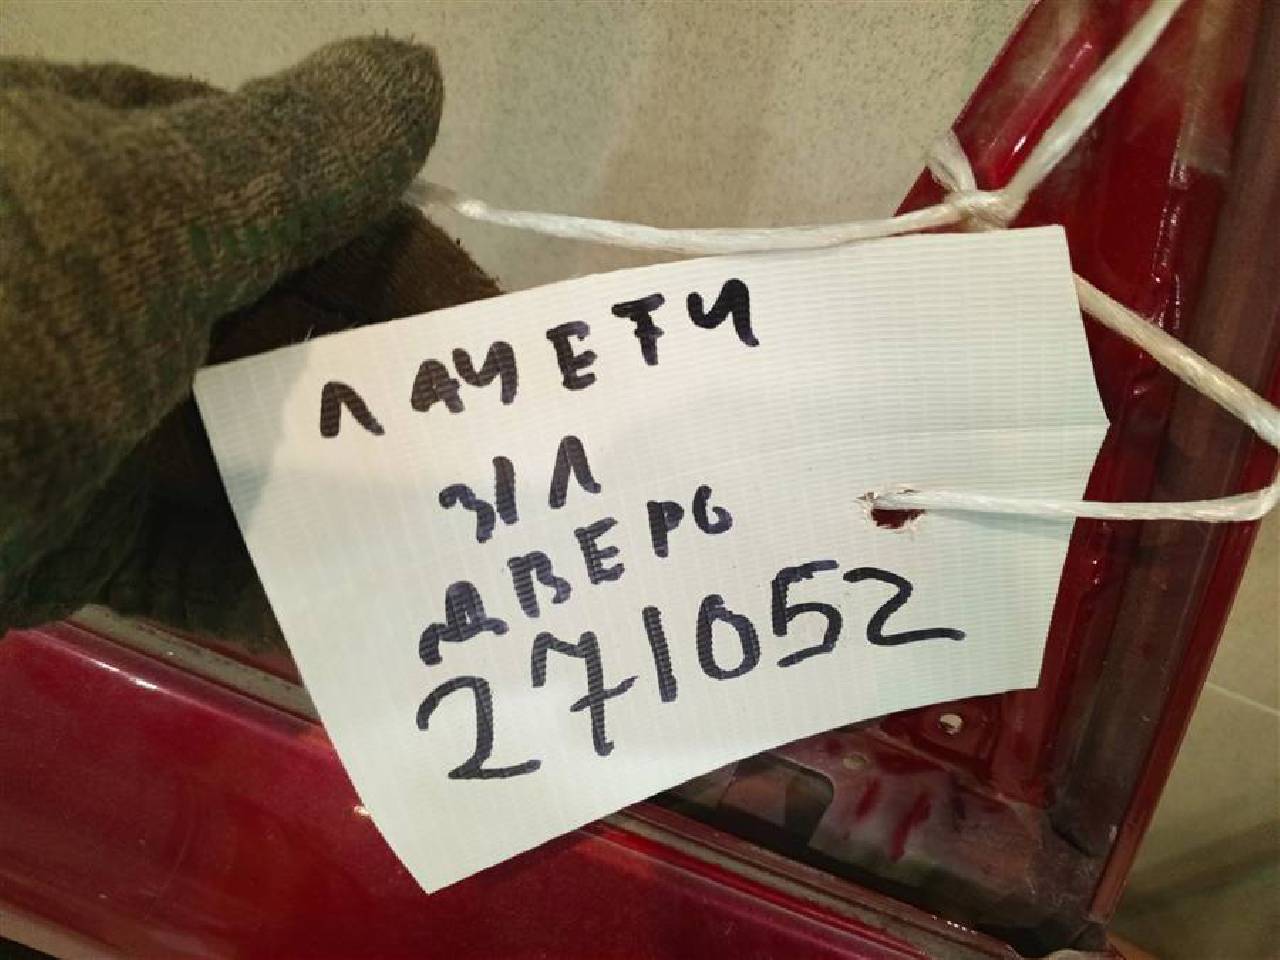 ЛАЧЕТИ
З/Л
ДВЕРЬ
271052